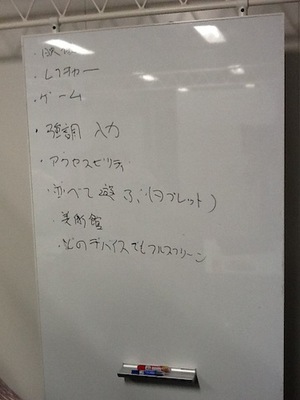 ・レクチャー
・ゲーム
・強調 入力
・アクセスビリティ
・並べて遊ぶ(タブレット)
・美術館
・のデバイスでもフルスクリーン